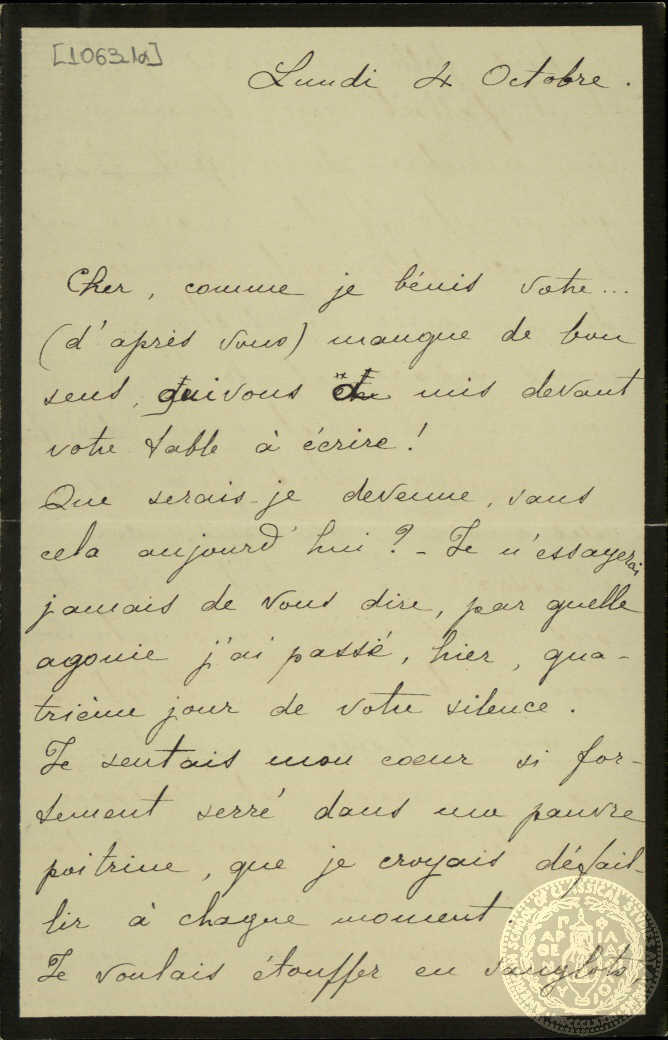 [1063.1α]
Lundi 4 Octobre.
Cher, comme je bénis votre...
(d'après vous) manque de bon
sens, qui vous a mis devant
votre table à écrire!
Que serais-je devenue, sans
cela aujourd'hui? - Je n'essayerai
jamais de vous dire, par quelle
agonie j'ai passé, hier, qua-
trième jour de votre silence.
Je sentais mon cœur si for-
tement serré dans ma pauvre
poitrine, que je croyais défail-
lir à chaque moment.
Je voulais étouffer en sanglots,
SCHOOL OF CLASSICAL STUDIES